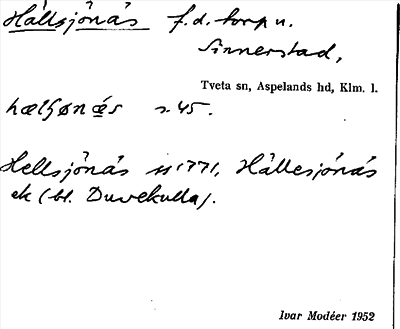 Hällsjönäs f.d. torp u.
Sinnerstad,
Tveta sn, Aspelands hd, Klm. l.
hælʃønæs s. 45.
Hellsjönäs 1771, Hällesjönäs
ek (bl. Duvekulla).
Ivar Modéer 1952